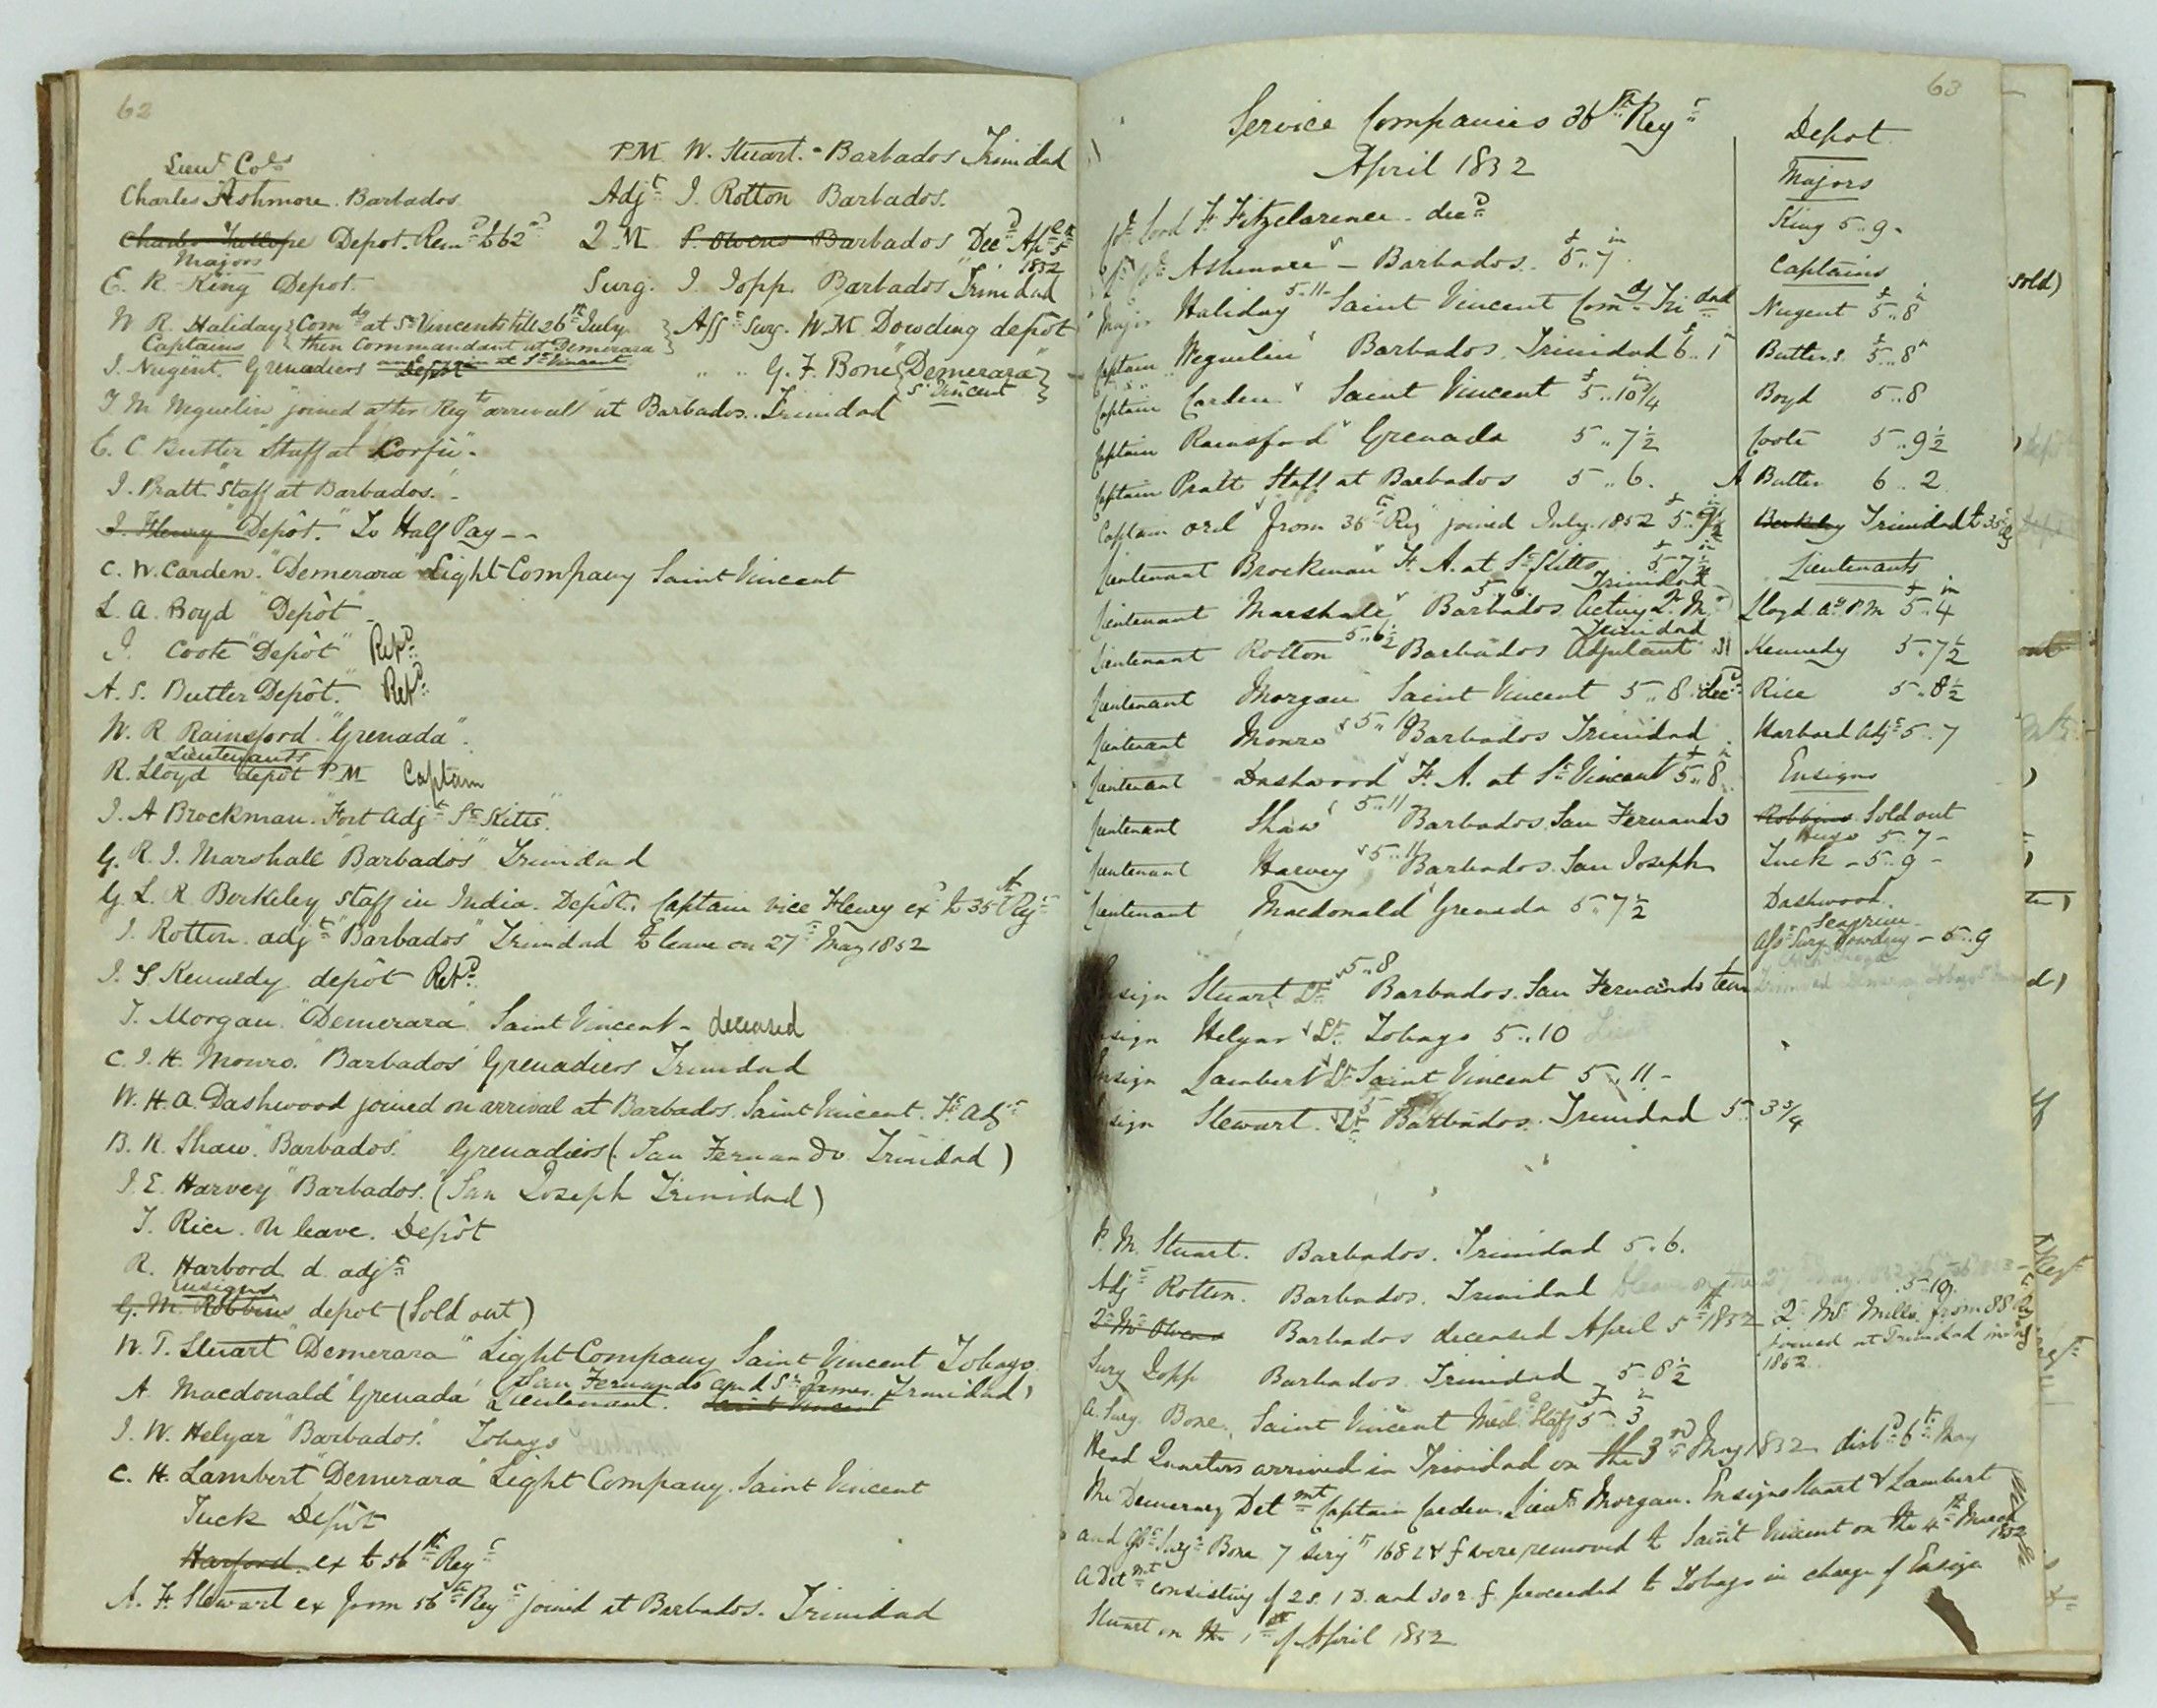 62
Lieut Cols
P.M. W. Stuart. - Barbados Trinidad
Charles Ashmore. Barbados.
Adjt I. Rotton Barbados.
Charles Depot. Remd to 62nd
Q.M. P. Owens Barbados Decd Apl 5th 1832
Majors
E. R. King Depot.
Surg. I. Jopp. Barbados Trinidad
W R. Haliday {Comdg at St Vincents till 26th July. then Commandant at Demerara and again at St Vincent}
Asst Surg. W.M Dowding depôt
Captains
I. Nugent. Grenadiers Depôt
" " G. F. Bone "Demerara" St Vincent
T. M Weguelin "joined after Regts arrival" at Barbados. Trinidad
E. C. Butter "Staff at Corfu".
I. Pratt "Staff at Barbados".
I. Henry "Depôt." To Half Pay - -
C. W. Carden. "Demerara" Light Company Saint Vincent
L. A. Boyd "Depôt" -
I. Coote "Depôt" Retd
A. S. Butter "Depôt." Retd
W. R Rainsford. "Grenada".
Lieutenants
R. Lloyd depôt P.M Captain
I. A Brockman. "Fort Adjt St Kitts".
G. R. I. Marshall "Barbados" Trinidad
G. L. R. Berkeley Staff in India. Depôt. Captain vice Henry exd to 35th Regt
I. Rotton. adjt "Barbados" Trinidad to leave on 27th May 1832
I. S Kennedy depôt Retd.
T. Morgan. "Demerara". Saint Vincent - deceased
C. I. H. Monro. "Barbados" Grenadiers Trinidad
W. H. A. Dashwood joined on arrival at Barbados. Saint Vincent. Ft Adjt
B. R. Shaw. "Barbados." Grenadiers (San Fernando Trinidad)
I. E. Harvey "Barbados." (San Joseph Trinidad)
T. Rice. On leave. Depôt
R. Harbord d. adjt
Ensigns
G. M. Robbins depot (Sold out)
W. T. Stuart "Demerara" Light Company Saint Vincent Tobago
(San Fernando and St James. Trinidad)
A. Macdonald "Grenada" Lieutenant. Saint Vincent
I. W. Helyar "Barbados." Tobago
C. H. Lambert "Demerara" Light Company. Saint Vincent
Tuck Depôt
Harford. ex to 56th Regt
A. F. Stewart ex from 56th Regt joined at Barbados. Trinidad
63
Service Companies 36th Regt
April 1832
Lord F. Fitzclarence. decd
Ashmore - Barbados. 5..7
Major Haliday 5..11 Saint Vincent Comdg Trinidad
Captain Weguelin Barbados. Trinidad 6..1
Captain Carden Saint Vincent 5..10 3/4
Captain Rainsford Grenada 5..7 1/2
Captain Pratt Staff at Barbados 5..6.
Captain from 35th Regt joined July. 1832
Lieutenant Brockman F. A. at St Kitts 5 7 1/2
Lieutenant Marshall 5..6 Barbados Acting Q. M. Trinidad
Lieutenant Rotton 5..6 1/2 Barbados Adjutant Trinidad
Lieutenant Morgan Saint Vincent 5..8 decd
Lieutenant Monro 5..10 Barbados Trinidad
Lieutenant Dashwood F. A. at St Vincent 5..8
Lieutenant Shaw 5..11 Barbados. San Fernando
Lieutenant Harvey 5..11 Barbados. San Joseph
Lieutenant Macdonald Grenada 5..7 1/2
Ensign Stuart Lt 5..8 Barbados. San Fernando
Ensign Helyar Lt Tobago 5..10 Lieut
Ensign Lambert Lt Saint Vincent 5..11 -
Ensign Stewart. Lt Barbados. Trinidad 5..3 3/4
P. M. Stuart. Barbados. Trinidad 5..6.
Adjt Rotton. Barbados. Trinidad
Q. Mr Owens Barbados deceased April 5th 1832
Surg Jopp Barbados. Trinidad 5 8 1/2
A. Surg. Bone. Saint Vincent Medl Staff 5 3
Head Quarters arrived in Trinidad on the 3rd May 1832 disbd 6th May
The Demerary Detmt Captain Carden. Lieut Morgan. Ensigns Stuart & Lambert
and Asst Surgn Bone 7 Serjts 168 R & f were removed to Saint Vincent on the 4th March 1832
A Detmt consisting of 2 S. 1 D. and 30 r. f. proceeded to Tobago in charge of Ensign
Stuart on the 1st of April 1832
Depot
Majors
King 5..9 -
Captains
Nugent 5..8
Butter. 5..8
Boyd 5..8
Coote 5..9 1/2
A Butter 6..2
Berkeley Trinidad to 35th Rg
Lieutenants
Lloyd Ag P.M 5..4
Kennedy 5..7 1/2
Rice 5..8 1/2
Harbord Adjt 5..7
Ensigns
Robbins Sold out
5..7 -
Tuck - 5..9 -
Dashwood.
Seagrim -
Asst Surg Dowding - 5..9
5 10
Q. Mr Mills. from 88 Rg
joined at Trinidad in
1832.
sold)